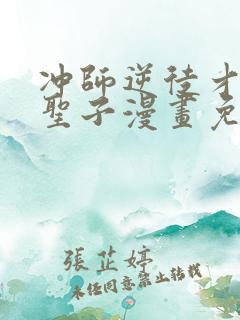 冲師逆徒才
聖子漫畫免
張芷婷
未經同意禁止轉載